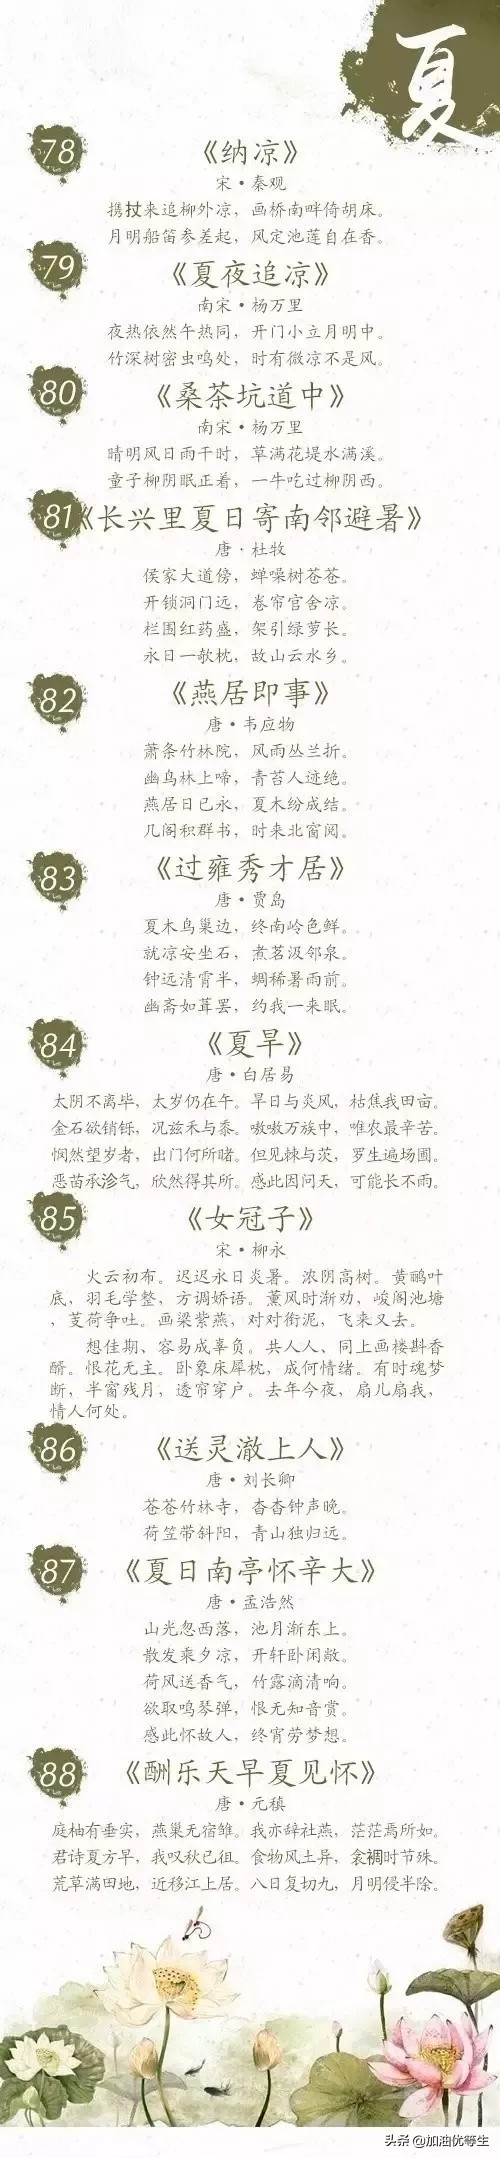 夏
78
《纳凉》
宋·秦观
携扙来追柳外凉，画桥南畔倚胡床。
月明船笛参差起，风定池莲自在香。
79
《夏夜追凉》
南宋·杨万里
夜热依然午热同，开门小立月明中。
竹深树密虫鸣处，时有微凉不是风。
80
《桑茶坑道中》
南宋·杨万里
晴明风日雨干时，草满花堤水满溪。
童子柳阴眠正着，一牛吃过柳阴西。
81
《长兴里夏日寄南邻避暑》
唐·杜牧
侯家大道傍，蝉噪树苍苍。
开锁洞门远，卷帘官舍凉。
栏围红药盛，架引绿萝长。
永日一欹枕，故山云水乡。
82
《燕居即事》
唐·韦应物
萧条竹林院，风雨丛兰折。
幽鸟林上啼，青苔人迹绝。
燕居日已永，夏木纷成结。
几阁积群书，时来北窗阅。
83
《过雍秀才居》
唐·贾岛
夏木鸟巢边，终南岭色鲜。
就凉安坐石，煮茗汲邻泉。
钟远清霄半，蜩稀暑雨前。
幽斋如葺罢，约我一来眠。
84
《夏旱》
唐·白居易
太阴不离毕，太岁仍在午。旱日与炎风，枯焦我田亩。
金石欲销铄，况兹禾与黍。嗷嗷万族中，唯农最辛苦。
悯然望岁者，出门何所睹。但见棘与茨，罗生遍场圃。
恶苗承沴气，欣然得其所。感此因问天，可能长不雨。
85
《女冠子》
宋·柳永
火云初布。迟迟永日炎暑。浓阴高树。黄鹂叶
底，羽毛学整，方调娇语。薰风时渐劝，峻阁池塘
，芰荷争吐。画梁紫燕，对对衔泥，飞来又去。
想佳期、容易成辜负。共人人、同上画楼斟香
醑。恨花无主。卧象床犀枕，成何情绪。有时魂梦
断，半窗残月，透帘穿户。去年今夜，扇儿扇我，
情人何处。
86
《送灵澈上人》
唐·刘长卿
苍苍竹林寺，杳杳钟声晚。
荷笠带斜阳，青山独归远。
87
《夏日南亭怀辛大》
唐·孟浩然
山光忽西落，池月渐东上。
散发乘夕凉，开轩卧闲敞。
荷风送香气，竹露滴清响。
欲取鸣琴弹，恨无知音赏。
感此怀故人，终宵劳梦想。
88
《酬乐天早夏见怀》
唐·元稹
庭柚有垂实，燕巢无宿雏。我亦辞社燕，茫茫焉所如。
君诗夏方早，我叹秋已徂。食物风土异，衾裯时节殊。
荒草满田地，近移江上居。八日复切九，月明侵半除。
头条 @加油优等生